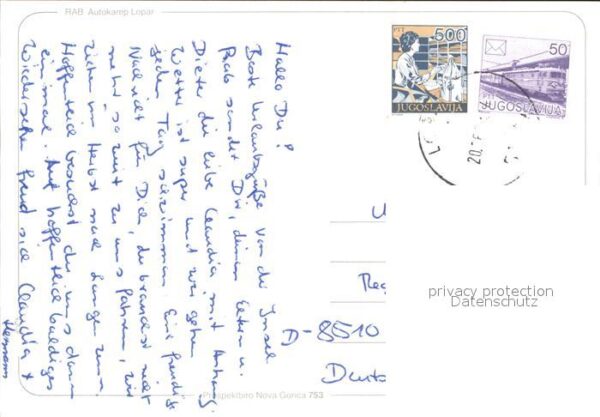 RAB Autokamp Lopar
Hallo Du!
Beste Urlaubsgrüße von der Insel
Rab sendet Dir, deinen Eltern u.
Dieter die liebe Claudia mit Anhang.
Wetter ist super und wir gehen
jeden Tag schwimmen. Eine freudige
Nachricht für Dich, du brauchst nicht
mehr so weit zu uns fahren, wir
ziehen im Herbst nach Langenzenn.
Hoffentlich besuchst du uns dann
einmal. Auf hoffentlich baldiges
Wiedersehen freut sich Claudia +
Hermann
PTT
500
JUGOSLAVIJA
50
PTT
JUGOSLAVIJA
20.
D-8510
privacy protection
Datenschutz
Prospektbiro Nova Gorica 753